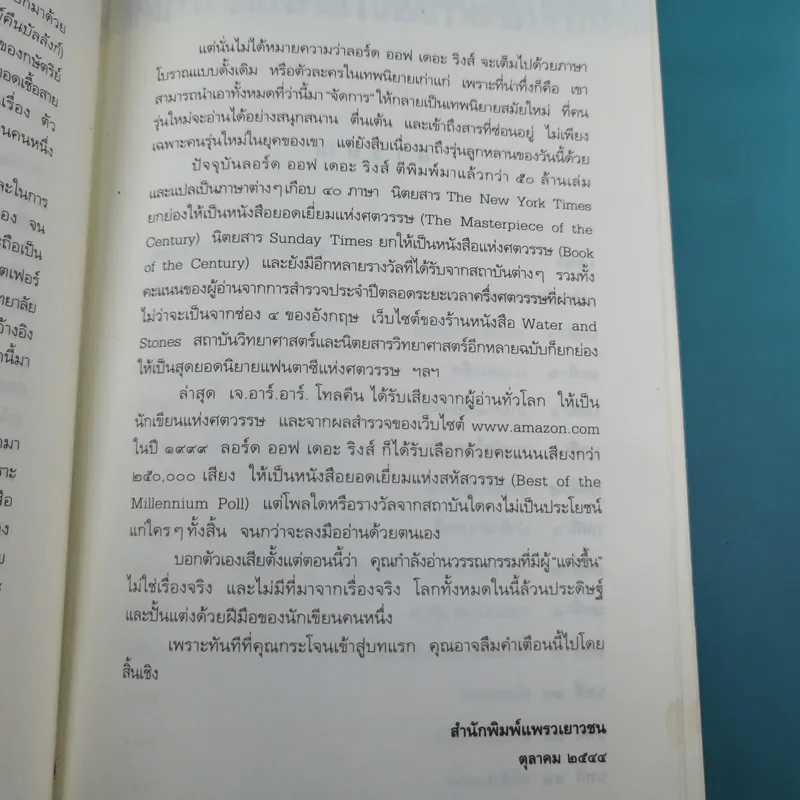 กมาด้วย
คืนบัลลังก์)
ของกษัตริย์
อดเชื้อสาย
เรื่อง ตัว
นคนหนึ่ง
ละในการ
อง จน
ะถือเป็น
ตเฟอร์
ทยาลัย
ว้างอิง
นี้มา
ามา
ราะ
สือ
ง
ย
ะ
แต่นั่นไม่ได้หมายความว่าลอร์ด ออฟ เดอะ ริงส์ จะเต็มไปด้วยภาษา
โบราณแบบดั้งเดิม หรือตัวละครในเทพนิยายเก่าแก่ เพราะที่น่าทึ่งก็คือ เขา
สามารถนำเอาทั้งหมดที่ว่านี้มา "จัดการ" ให้กลายเป็นเทพนิยายสมัยใหม่ ที่คน
รุ่นใหม่จะอ่านได้อย่างสนุกสนาน ตื่นเต้น และเข้าถึงสารที่ซ่อนอยู่ ไม่เพียง
เฉพาะคนรุ่นใหม่ในยุคของเขา แต่ยังสืบเนื่องมาถึงรุ่นลูกหลานของวันนี้ด้วย
ปัจจุบันลอร์ด ออฟ เดอะ ริงส์ ตีพิมพ์มาแล้วกว่า ๕๐ ล้านเล่ม
และแปลเป็นภาษาต่างๆ เกือบ ๔๐ ภาษา นิตยสาร The New York Times
ยกย่องให้เป็นหนังสือยอดเยี่ยมแห่งศตวรรษ (The Masterpiece of the
Century) นิตยสาร Sunday Times ยกให้เป็นหนังสือแห่งศตวรรษ (Book
of the Century) และยังมีอีกหลายรางวัลที่ได้รับจากสถาบันต่างๆ รวมทั้ง
คะแนนของผู้อ่านจากการสำรวจประจำปีตลอดระยะเวลาครึ่งศตวรรษที่ผ่านมา
ไม่ว่าจะเป็นจากช่อง ๔ ของอังกฤษ เว็บไซต์ของร้านหนังสือ Water and
Stones สถาบันวิทยาศาสตร์และนิตยสารวิทยาศาสตร์อีกหลายฉบับก็ยกย่อง
ให้เป็นสุดยอดนิยายแฟนตาซีแห่งศตวรรษ ฯลฯ
ล่าสุด เจ.อาร์.อาร์. โทลคีน ได้รับเสียงจากผู้อ่านทั่วโลก ให้เป็น
นักเขียนแห่งศตวรรษ และจากผลสำรวจของเว็บไซต์ www.amazon.com
ในปี ๑๙๙๙ ลอร์ด ออฟ เดอะ ริงส์ ก็ได้รับเลือกด้วยคะแนนเสียงกว่า
๒๕๐,๐๐๐ เสียง ให้เป็นหนังสือยอดเยี่ยมแห่งสหัสวรรษ (Best of the
Millennium Poll) แต่โพลใดหรือรางวัลจากสถาบันใดคงไม่เป็นประโยชน์
แก่ใครๆ ทั้งสิ้น จนกว่าจะลงมืออ่านด้วยตนเอง
บอกตัวเองเสียตั้งแต่ตอนนี้ว่า คุณกำลังอ่านวรรณกรรมที่มีผู้ "แต่งขึ้น"
ไม่ใช่เรื่องจริง และไม่มีที่มาจากเรื่องจริง โลกทั้งหมดในนี้ล้วนประดิษฐ์
และปั้นแต่งด้วยฝีมือของนักเขียนคนหนึ่ง
เพราะทันทีที่คุณกระโจนเข้าสู่บทแรก คุณอาจลืมคำเตือนนี้ไปโดย
สิ้นเชิง
สำนักพิมพ์แพรวเยาวชน
ตุลาคม ๒๕๔๔